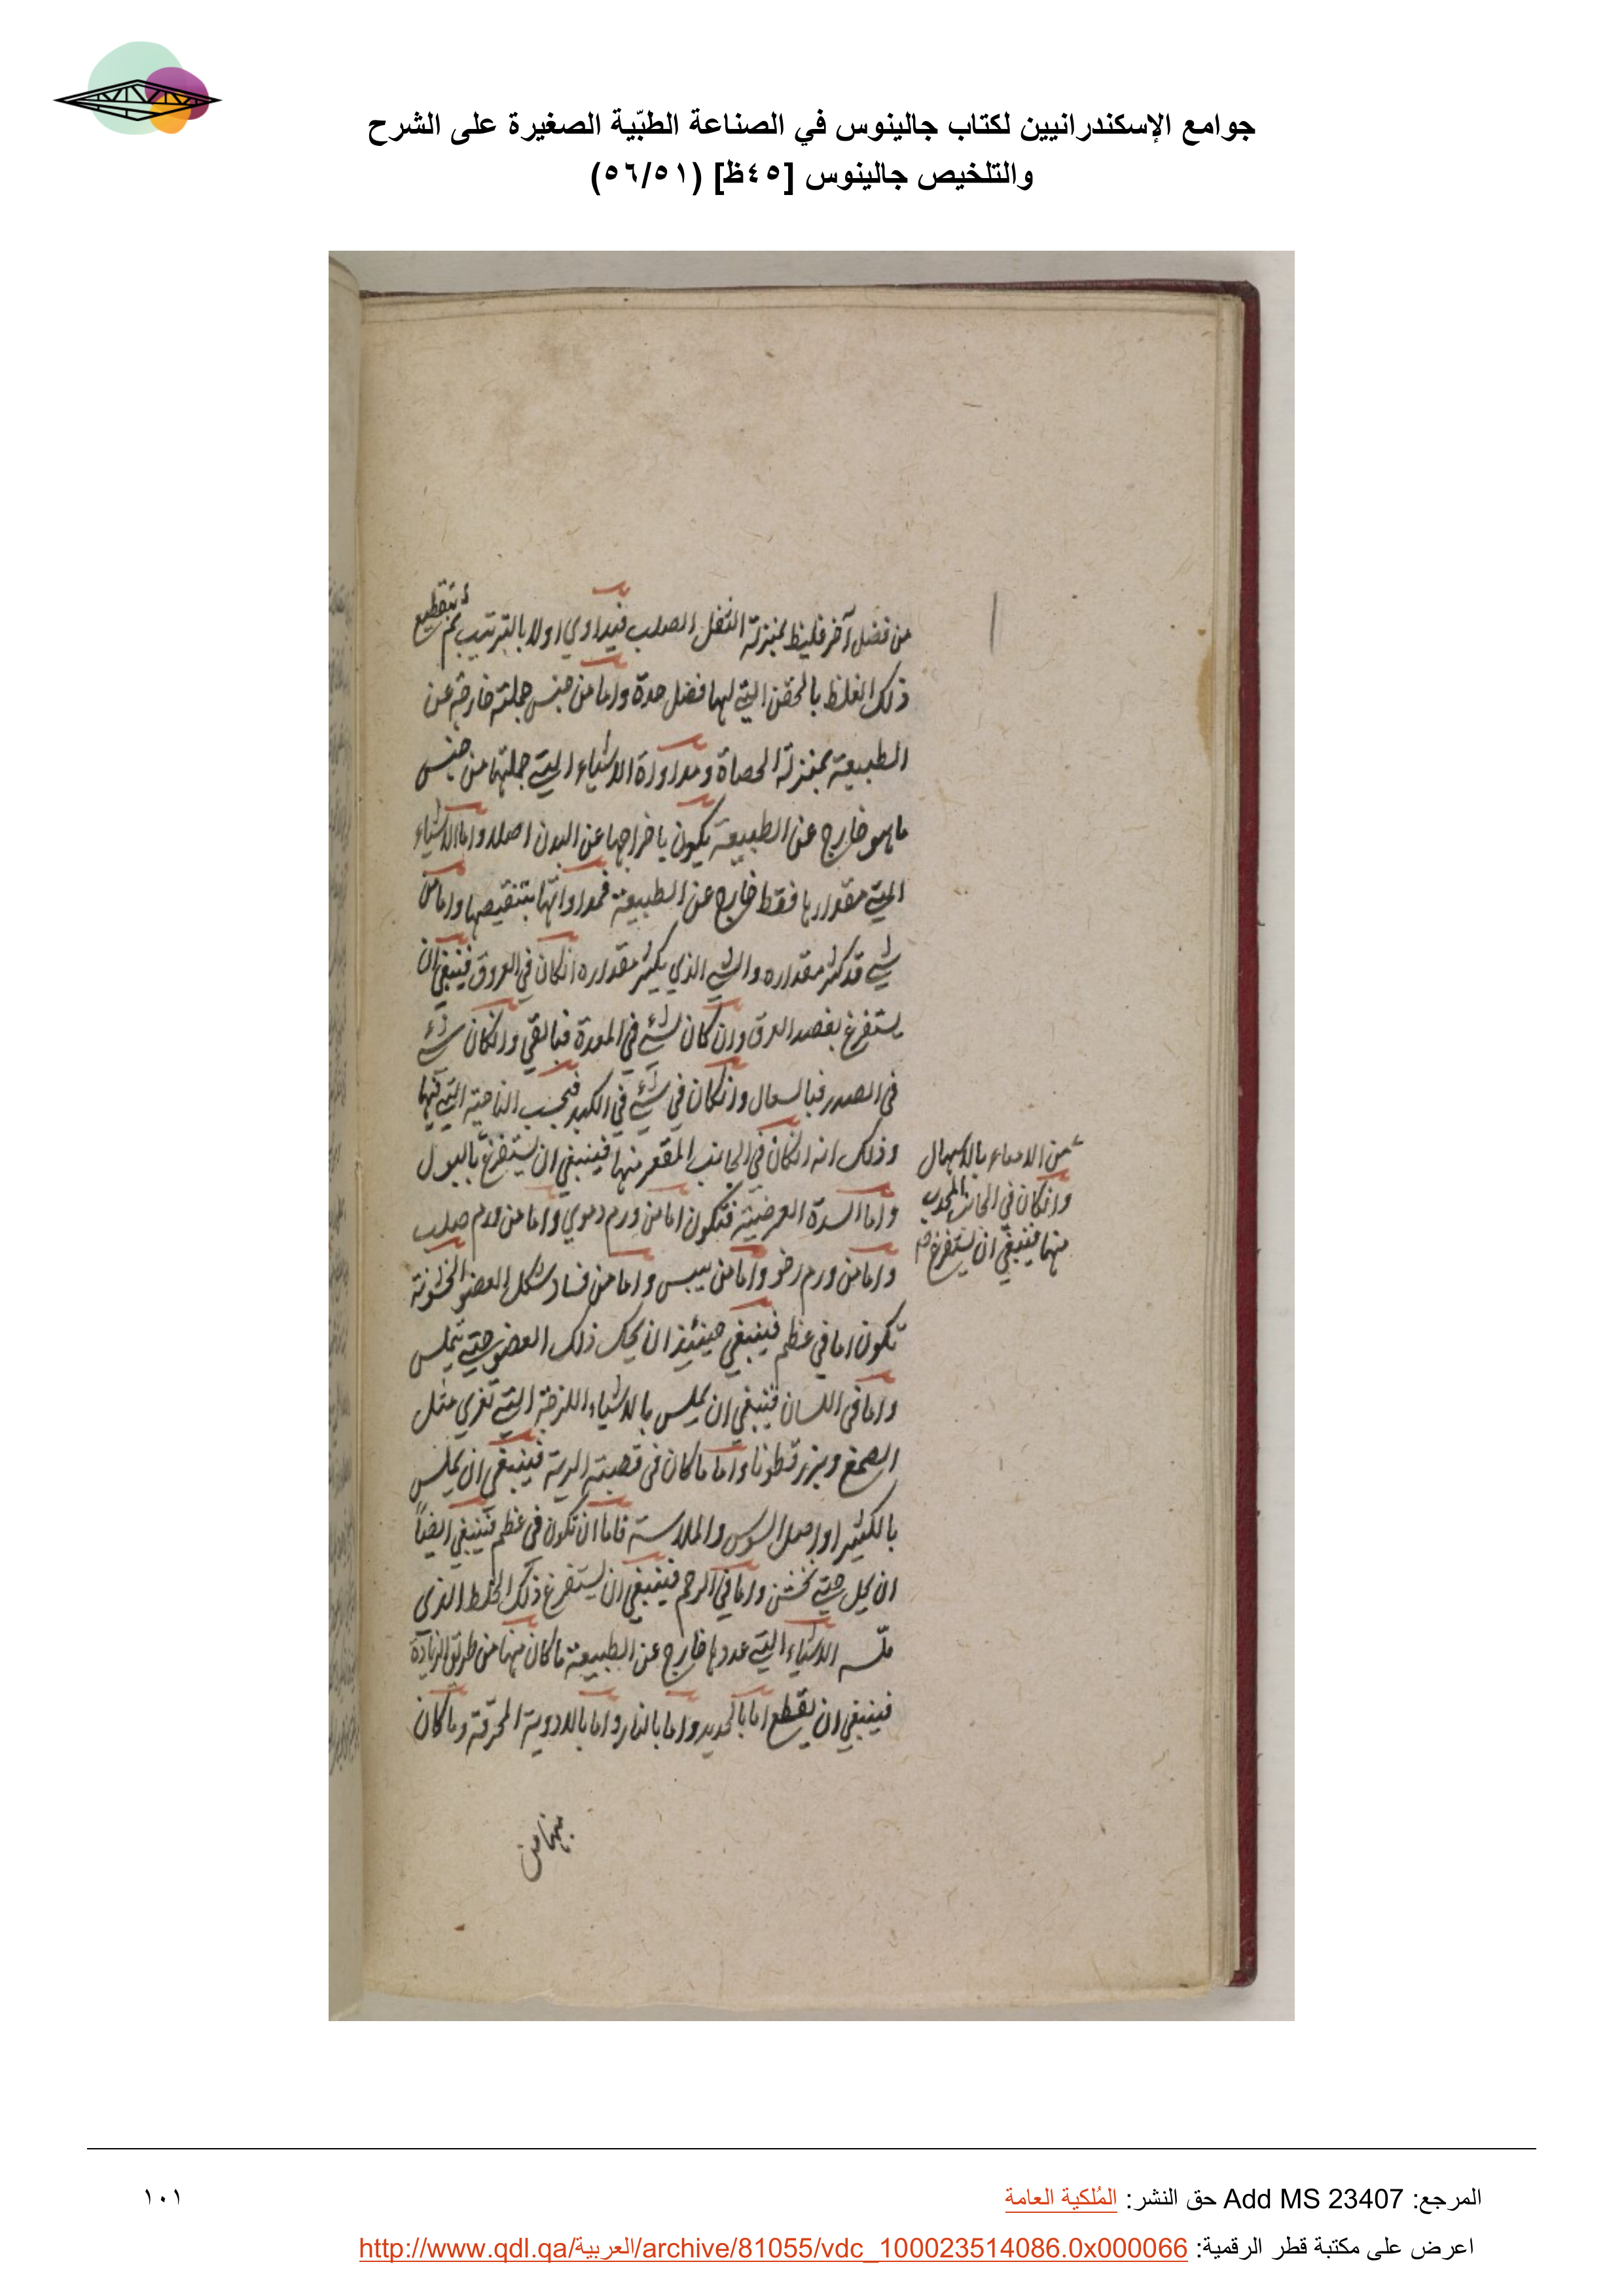 جوامع الإسكندرانيين لكتاب جالينوس في الصناعة الطبّية الصغيرة على الشرح
والتلخيص جالينوس [٤٥ظ] (٥٦/٥١)
من فضل آخر غليظ بمنزلة الثفل الصلب فيداوي اولا بالترتيب ثم بتقطيع
ذلك الغلظ بالحقن التي لها فضل حدة واما من جنس جملته خارجة عن
الطبيعة بمنزلة الحصاة ومداواة الاشياء التي جملتها من جنس
ما هو خارج عن الطبيعة يكون باخراجها عن البدن اصلا واما الاشياء
التي مقدارها فقط خارج عن الطبيعة فمداواتها بتنقيصها واما من
شي قد كثر مقداره والشي الذي يكثر مقداره انكان في العروق فينبغي ان
يستفرغ بفصد العرق وان كان شيء في المعدة فبالقي وانكان شيء
في الصدر فبالسعال وانكان في شيء في الكبد فبحسب الناحية التي فيها
وذلك انه انكان في الجانب المقعر منها فينبغي ان يستفرغ بالبول
من الامعاء بالاسهال
وانكان في الجانب المحدب
منها فينبغي ان يستفرغ
واما السدة العرضية فتكون اما من ورم دموي واما من ورم صلب
واما من ورم رخو واما من يبس واما من فساد شكل العضو الخشونة
تكون اما في عظم فينبغي حينئذ ان يحك ذلك العضو حتي يملس
واما في اللسان فينبغي ان يملس بالاشياء اللزجة التي تغري مثل
الصمغ وبزر قطونا واما ما كان في قصبة الرية فينبغي ان يملس
بالكثيرا واصل السوس والملاسة فاما ان تكون في عظم فينبغي ايضاً
ان يحك حتي يخشن واما في الرحم فينبغي ان يستفرغ ذلك الخلط الذي
ملّسه الاشياء التي عددها خارج عن الطبيعة ما كان منها من طريق الزيادة
فينبغي ان يقطع اما بالحديد واما بالنار واما بالادوية المحرقة وما كان
منها من
المرجع: Add MS 23407 حق النشر: المُلكية العامة
١٠١
اعرض على مكتبة قطر الرقمية: http://www.qdl.qa/العربية/archive/81055/vdc_100023514086.0x000066